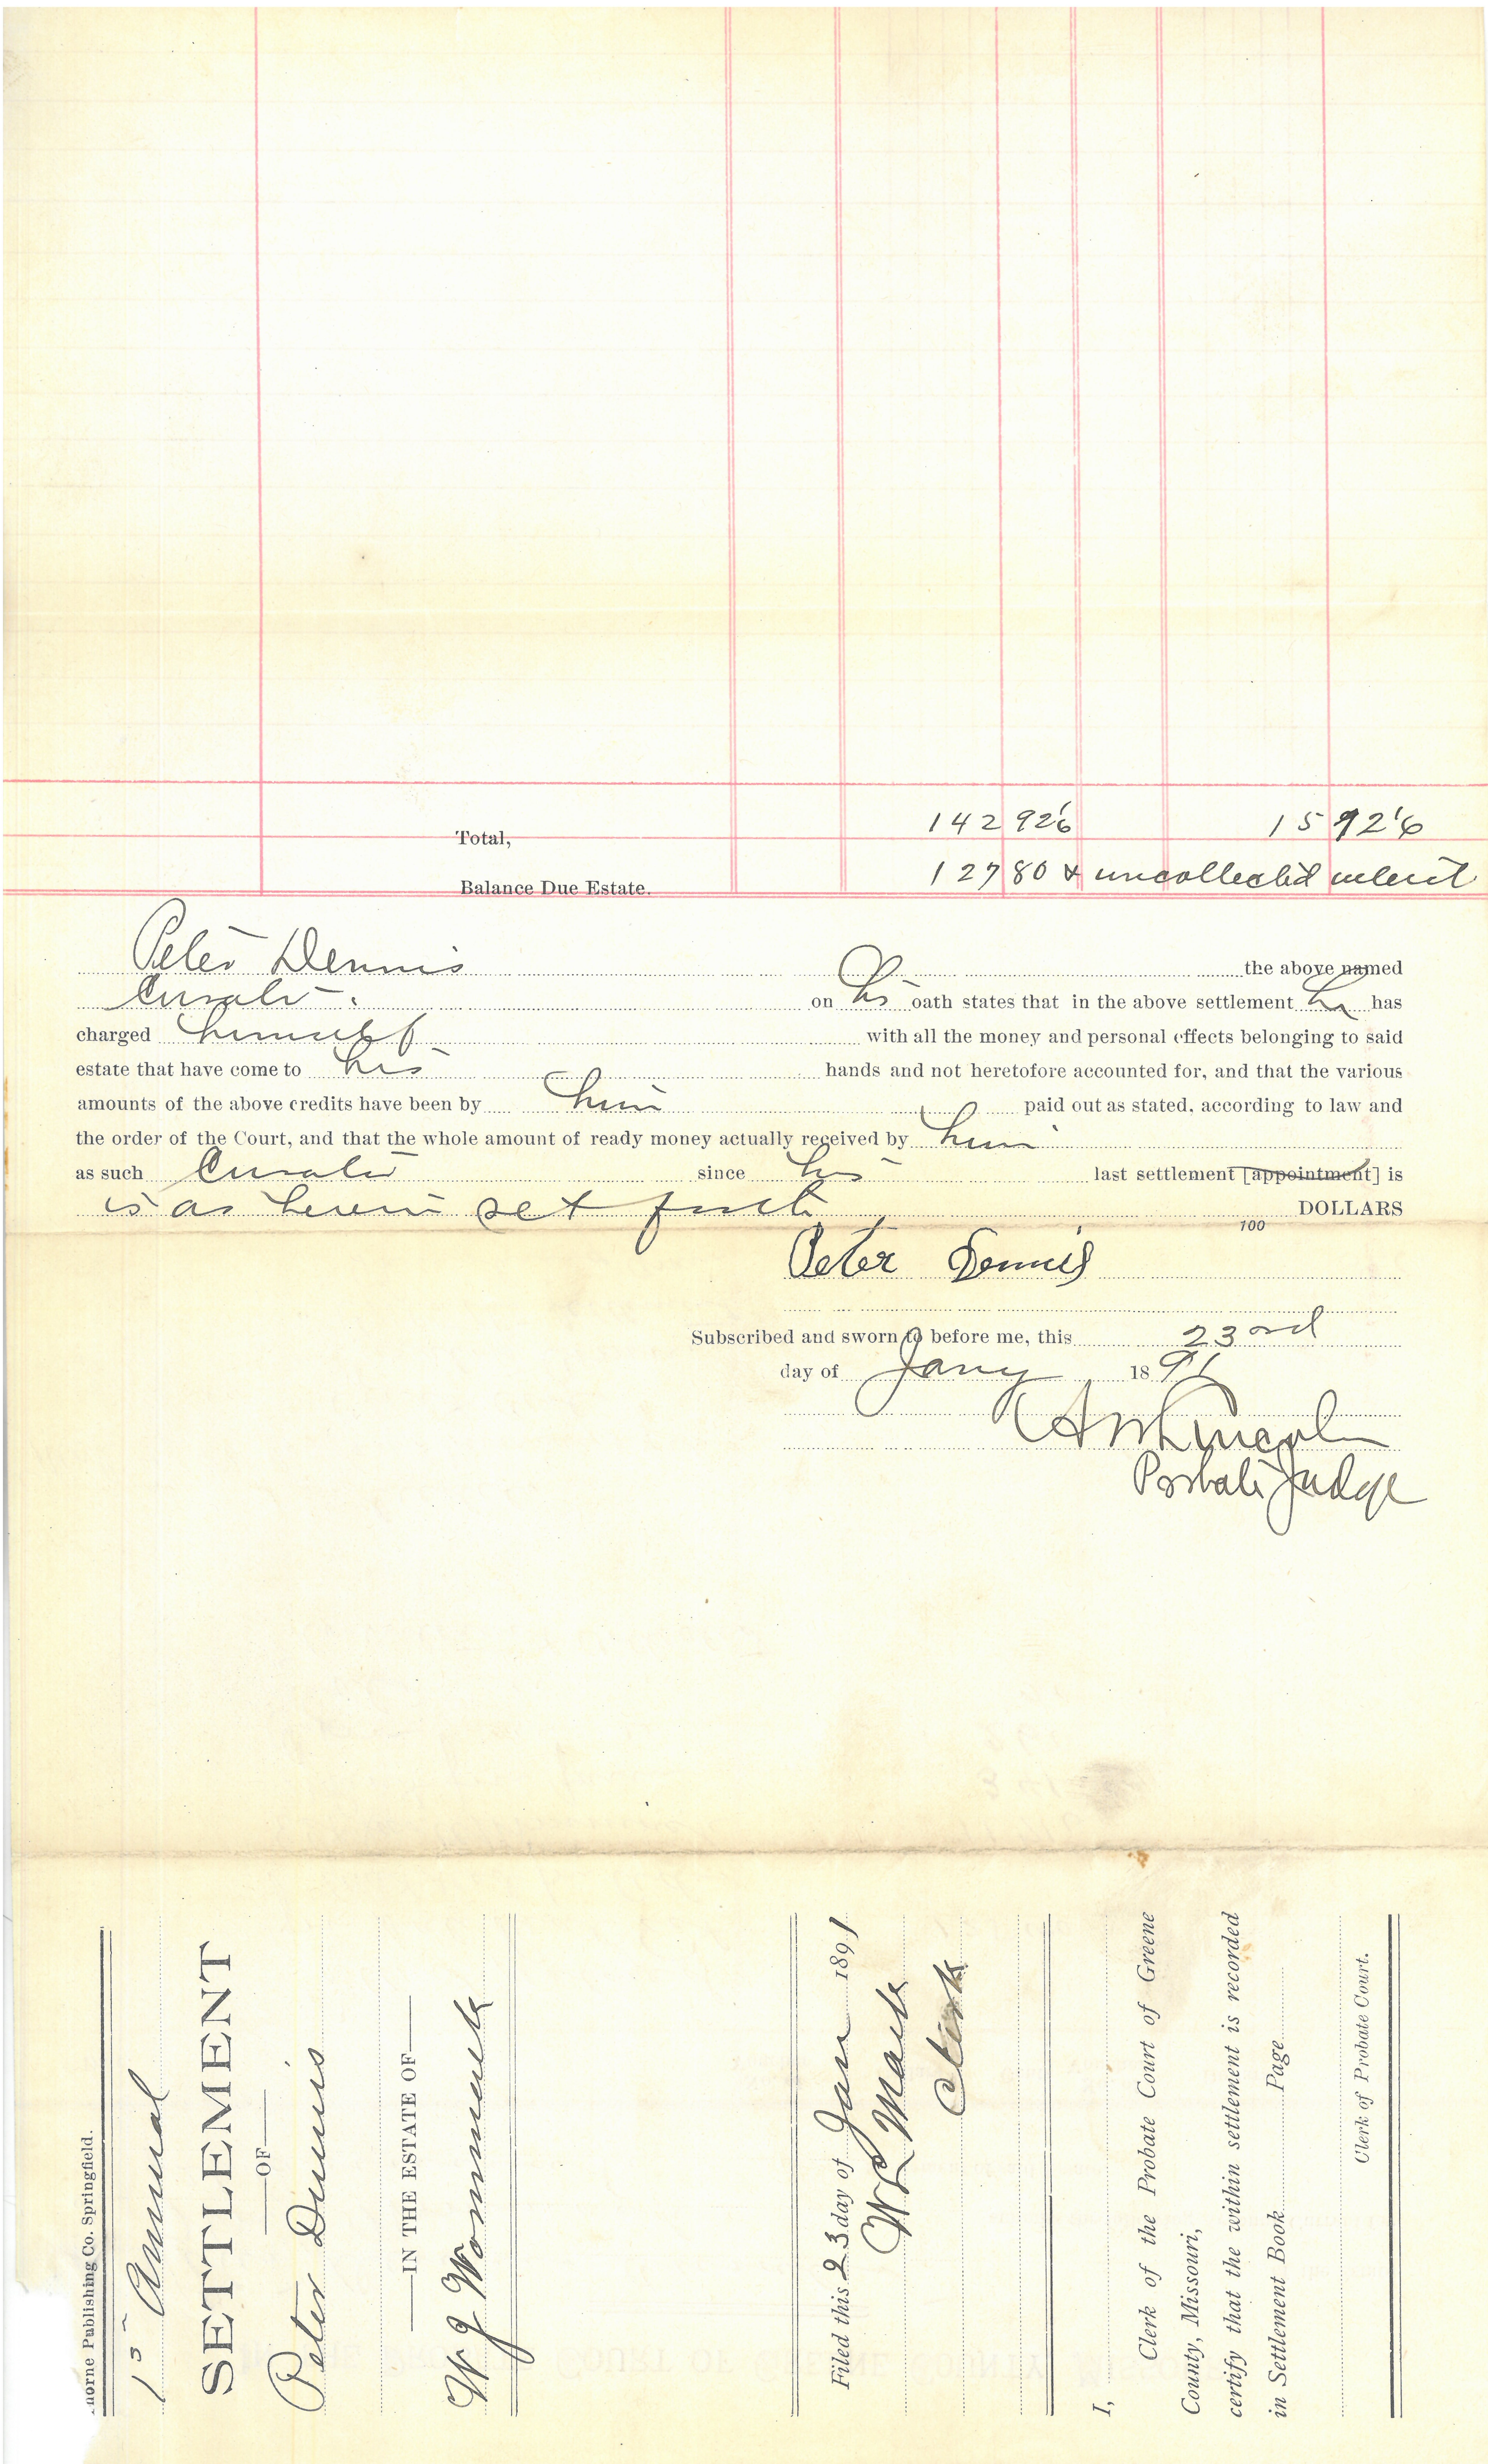 Total, 1429 26 159 26
Balance Due Estate. 127 80 & uncollected
Peter Dennis the above named
Curator on his oath states that in the above settlement he has
charged himself with all the money and personal effects belonging to said
estate that have come to his hands and not heretofore accounted for, and that the various
amounts of the above credits have been by him paid out as stated, according to law and
the order of the Court, and that the whole amount of ready money actually received by him
as such Curator since his last settlement [appointment] is
is as herein set forth DOLLARS
100
Peter Dennis
Subscribed and sworn to before me, this 23rd
day of Jany 1891
Lincoln
Probate Judge
horne Publishing Co. Springfield.
1st Annual
SETTLEMENT
OF
Peter Dennis
IN THE ESTATE OF
W J Wommack
Filed this 23 day of Jan 1891
Clerk
I,
Clerk of the Probate Court of Greene
County, Missouri,
certify that the within settlement is recorded
in Settlement Book Page
Clerk of Probate Court.